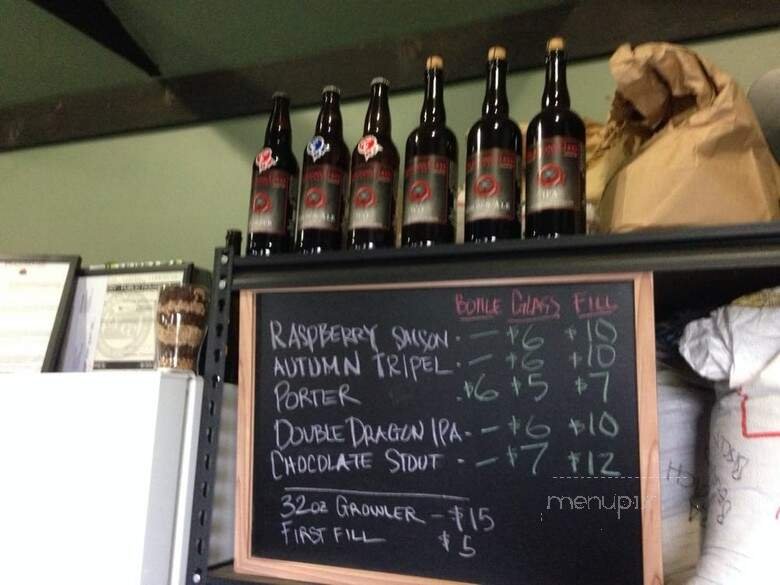 IPA
BOTTLE GLASS FILL
RASPBERRY SAISON - — $6 $10
AUTUMN TRIPEL - — $6 $10
PORTER - $6 $5 $7
DOUBLE DRAGON IPA - — $6 $10
CHOCOLATE STOUT - — $7 $12
32oz GROWLER - $15
FIRST FILL $5
menupix